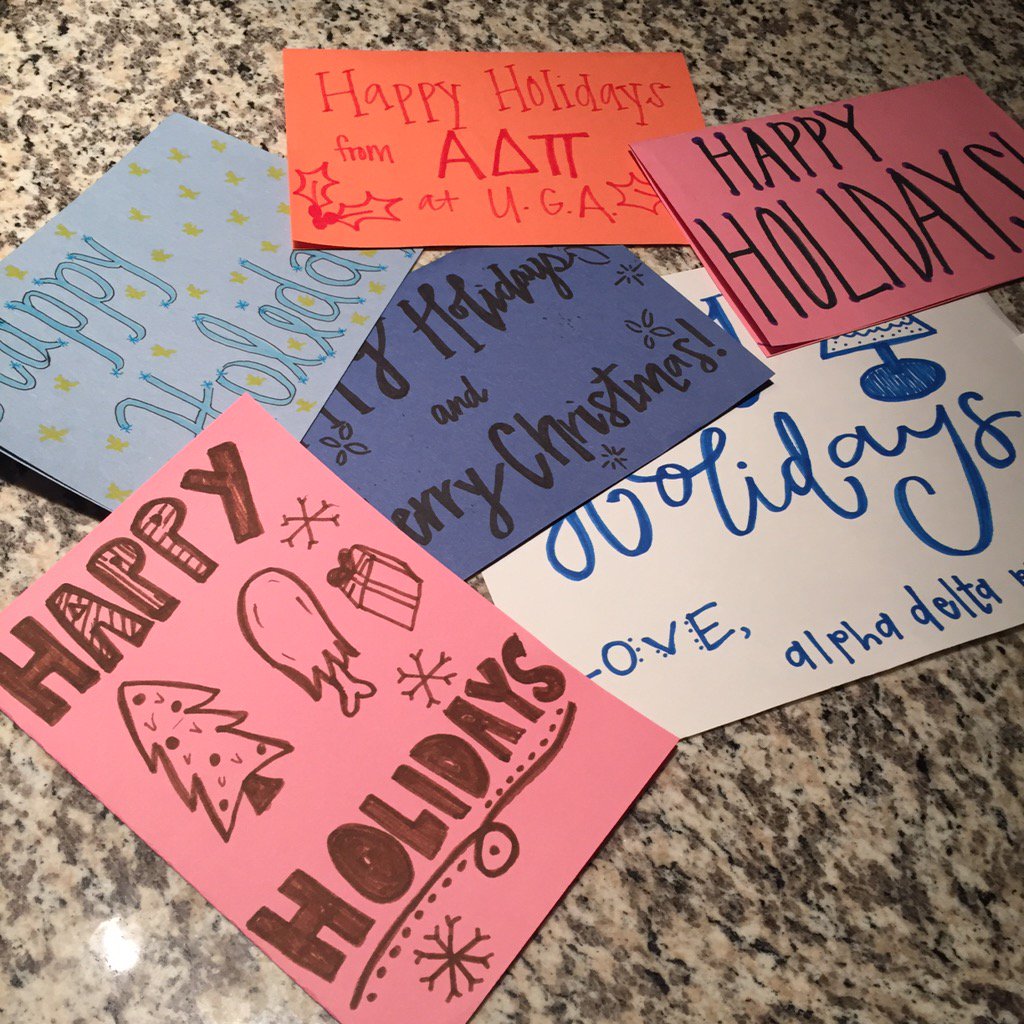 Happy Holidays
from ΑΔΠ
at U.G.A.
HAPPY
HOLIDAYS!
Happy
Holiday
Holidays
and
erry Christmas!
Holidays
LOVE,
alpha delta
HAPPY
HOLIDAYS